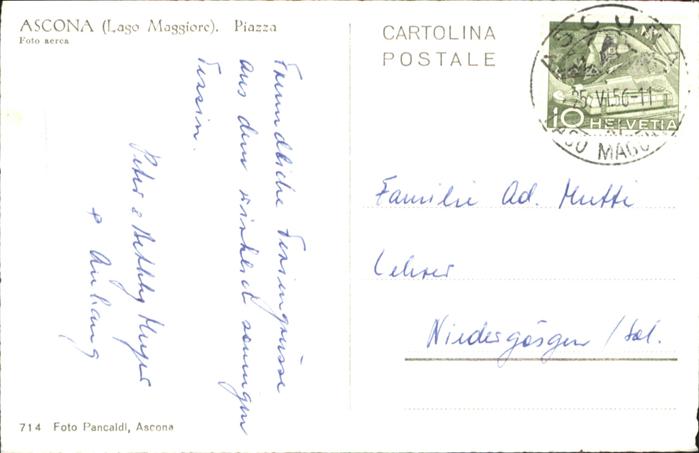 ASCONA (Lago Maggiore). Piazza
Foto aerea
CARTOLINA
POSTALE
ASCONA
25.VI.56-11
LAGO MAGGIORE
10 HELVETIA
Freundliche Tessingrüsse
aus dem wirklich sonnigen
Tessin.
Peter & Bethly Meyer
& Anhang
Familie Ad. Mutti
Lehrer
Niedergösgen / Sol.
714 Foto Pancaldi, Ascona